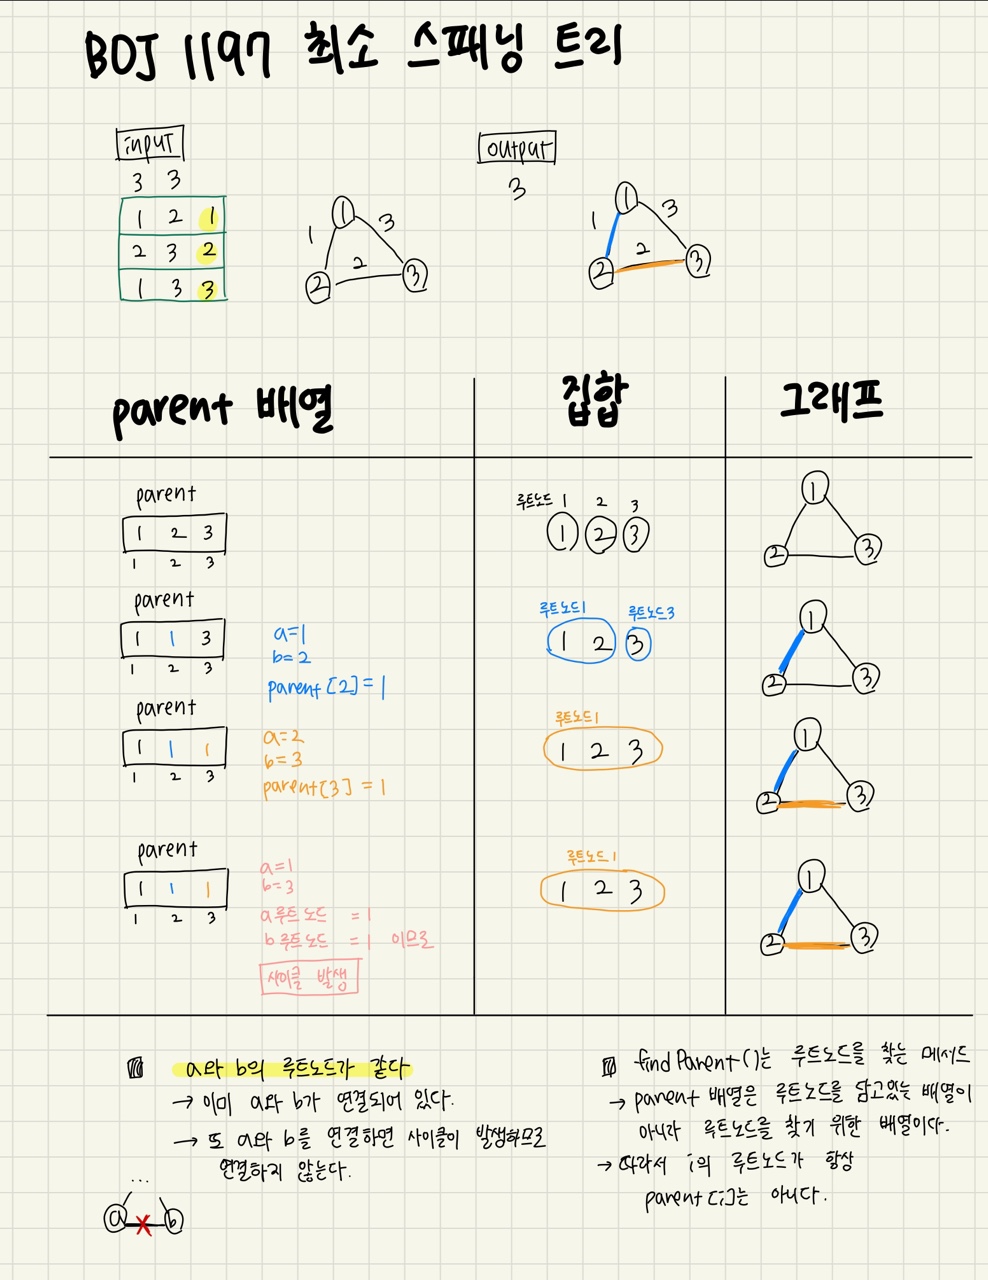 BOJ 1197 최소 스패닝 트리
input
3 3
1 2 1
2 3 2
1 3 3
1
3
2
1
2
3
output
3
1
3
2
1
2
3
parent 배열
집합
그래프
parent
1 2 3
1 2 3
루트노드 1 2 3
1 2 3
1
2
3
parent
1 1 3
1 2 3
a=1
b=2
parent[2]=1
루트노드1 루트노드3
1 2 3
1
2
3
parent
1 1 1
1 2 3
a=2
b=3
parent[3]=1
루트노드1
1 2 3
1
2
3
parent
1 1 1
1 2 3
a=1
b=3
a루트노드 =1
b루트노드 =1 이므로
사이클 발생
루트노드1
1 2 3
1
2
3
a와 b의 루트노드가 같다
→ 이미 a와 b가 연결되어 있다.
→ 또 a와 b를 연결하면 사이클이 발생하므로
연결하지 않는다.
...
a b
findParent()는 루트노드를 찾는 메서드
→ parent 배열은 루트노드를 담고있는 배열이
아니라 루트노드를 찾기 위한 배열이다.
→ 따라서 i의 루트노드가 항상
parent[i]는 아니다.